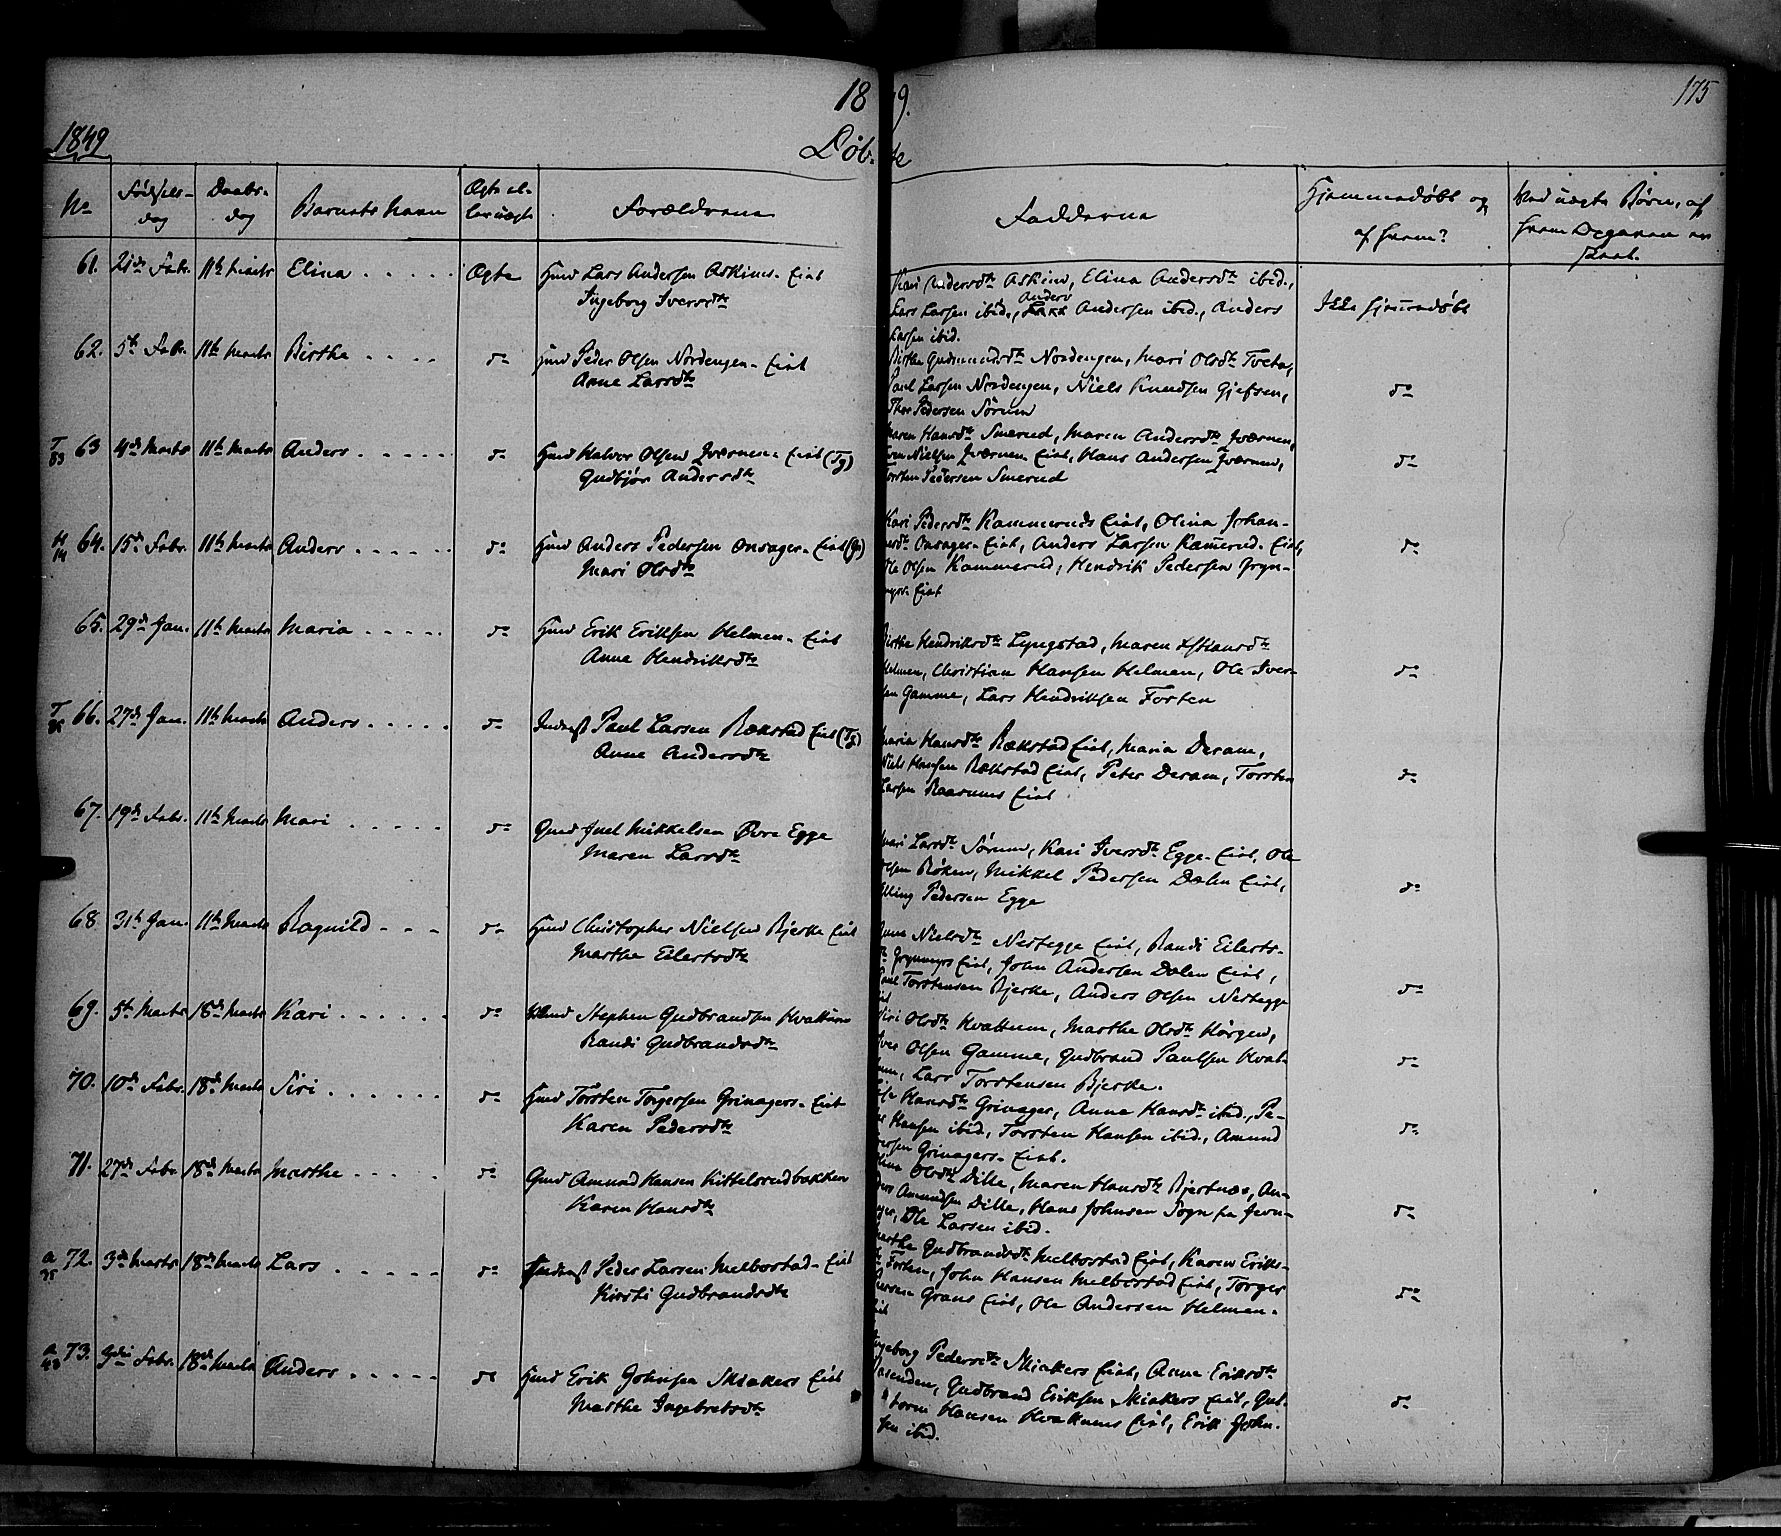 18 49.
175
1849
Døb- te
No
Fødsels-
dag
Daabs-
dag
Barnets Navn
Ægte el-
ler uægte
Forældrene
Fadderne
Hjemmedøbt og
af hvem?
Ved uægte Børn, af
hvem Degaren er
61. 21de Febr. 11te Marts Elina Ægte Hmd Lars Andersen Askims-Eiet
Ingeborg Iversdtr
Kari Andersdtr Askim, Elina Andersdtr ibid.,
Anders
Lars Larsen ibid., Andersen ibid., Anders
Larsen ibid.
Ikke hjemmedøbt
62. 5te Febr. 11te Marts Birthe do Hmd Peder Olsen Nordengen-Eiet
Anne Larsdtr
Birthe Gudmundsdtr Nordengen, Mari Olsdtr Tveta,
Paul Larsen Nordengen, Niels Knudsen Gjefsen,
Thor Pedersen Sørum
do
T
83
63 4de Marts 11te Marts Anders do Hmd Halvor Olsen Jværnen-Eiet (Tg)
Gudbjør Andersdtr
Maren Hansdtr Smerud, Maren Andersdtr Jværnen,
Nielsen Jværnen Eiet, Hans Andersen Jværnen,
Torsten Pedersen Smerud
do
H
14
64. 15de Febr. 11te Marts Anders do Hmd Anders Pedersen Onsager-Eiet
Mari Olsdtr
Kari Pedersdtr Kammeruds Eiet, Olina Johan-
nesdtr Onsager-Eiet, Anders Larsen Kamerud-Eiet,
Ole Olsen Kammerud, Hendrik Pedersen Gryn-
Eiet
do
65. 29de Jan. 11te Marts Maria do Hmd Erik Eriksen Helmen-Eiet
Anne Hendriksdtr
Birthe Hendriksdtr Lyngstad, Maren Hansdtr
Helmen, Christian Hansen Helmen, Ole Iver-
sen Gamme, Lars Hendriksen Forten
do
T
66. 27de Jan. 11te Marts Anders do Inderst Paul Larsen Rækstad Eiet (Tg)
Anne Andersdtr
Maria Hansdtr Rækstad Eiet, Maria Deram,
Niels Hansen Rækstad Eiet, Peter Deram, Torsten
Larsen Raasums Eiet
do
67. 19de Febr. 11te Marts Mari do Gmd Juel Mikkelsen Øvre Egge
Maren Larsdtr
Mari Larsdtr Sørum, Kari Iversdtr Egge-Eiet, Ole
Olsen Røken, Mikkel Pedersen Dælen Eiet,
Elling Pedersen Egge
do
68 31te Jan. 11te Marts Ragnild do Hmd Christopher Nielsen Bjerke Eiet
Marthe Eilertsdtr
Anne Nielsdtr Nestegge Eiet, Randi Eilerts-
dtr Grynmyrs Eiet, John Andersen Dælen Eiet,
Paul Torstensen Bjerke, Anders Olsen Nestegge
Eiet
do
69. 5te Marts 18de Marts Kari do Hmd Stephen Gudbrandsen Hvattum
Randi Gudbrandsdtr
Siri Olsdtr Hvattum, Marthe Olsdtr Hørgen,
Iver Olsen Gamme, Gudbrand Paulsen Hvat-
tum, Lars Torstensen Bjerke.
do
70. 10de Febr. 18de Marts Siri do Hmd Torsten Torgersen Grinagers-Eiet
Karen Pedersdtr
Hansdtr Grinager, Anne Hansdtr ibid., Pe-
der Hansen ibid., Torsten Hansen ibid., Amund
Grinagers-Eiet.
do
71. 27de Febr 18de Marts Marthe do Gmd Amund Hansen Kittelsrudbakken
Karen Hansdtr
Olina Olsdtr Dille, Maren Hansdtr Bjertnæs, An-
ders Amundsen Dille, Hans Johnsen Sogn fra Jevn-
aker, Ole Larsen ibid.
do
a
35
72. 3de Marts 18de Marts Lars do Inderst Peder Larsen Melbostad-Eiet
Kirsti Gudbrandsdtr
Marthe Gudbrandsdtr Melbostad Eiet, Karen Eriks-
dtr Forten, John Hansen Melbostad Eiet, Torger
Iversen Grans Eiet, Ole Andersen Helmen-
Eiet
do
a
43
73. 9de Febr. 18de Marts Anders do Hmd Erik Johnsen Skiakers Eiet
Marthe Ingebretsdtr
Ingeborg Pedersdtr Skiakers Eiet, Anne Eriksdtr
Gudbrand Eriksen Skiakers Eiet, Gut-
torm Hansen Hvattums Eiet, Erik John-
sen ibid.
do